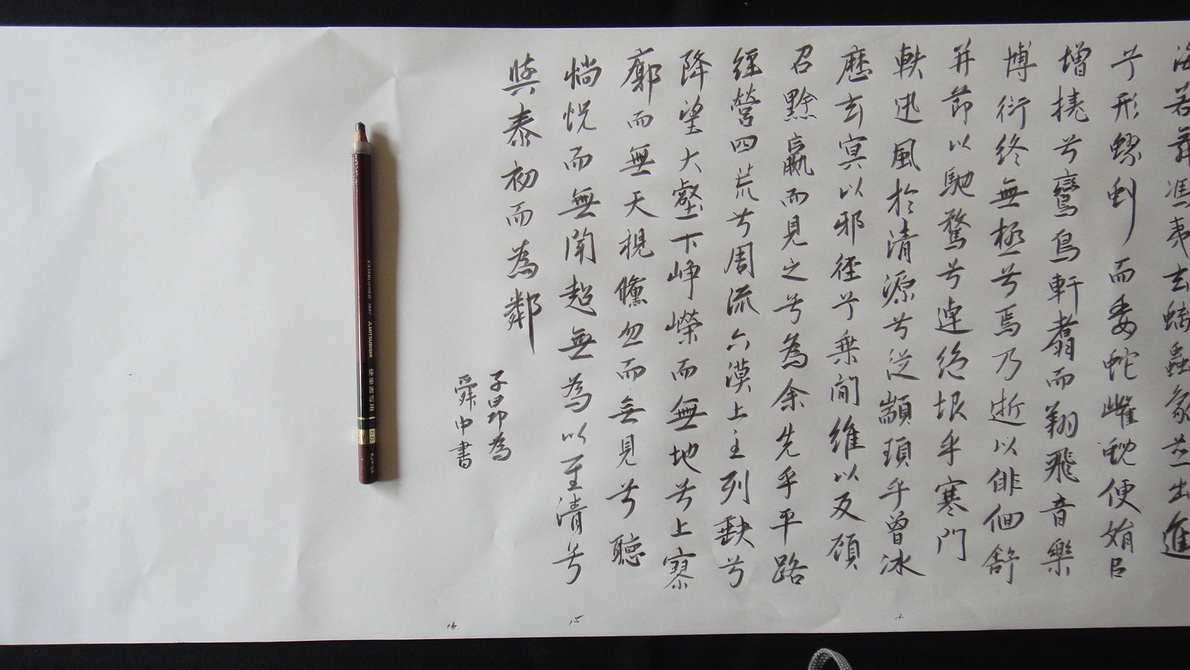 海若舞馮夷玄螭蟲象並出進
兮形蟉虬而委蛇雌蜺便娟以
增撓兮鸞鳥軒翥而翔飛音樂
博衍終無極兮焉乃逝以俳佪舒
并節以馳騖兮逴絕垠乎寒門
軼迅風於清源兮從顓頊乎曾冰
歷玄冥以邪徑兮乘間維以反顧
召黔嬴而見之兮為余先乎平路
經營四荒兮周流六漠上至列缺兮
降望大壑下崢嶸而無地兮上寥
廓而無天視儵忽而無見兮聽
惝怳而無聞超無為以至清兮
與泰初而為鄰
子昂為
舜中書
15
MITSUBISHI